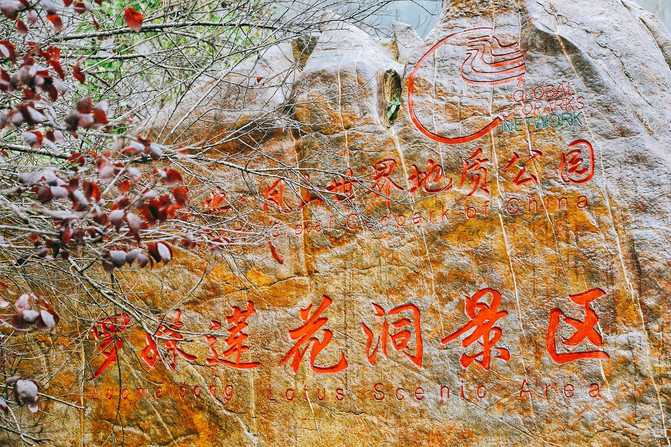 GLOBAL
GEOPARKS
NETWORK
凤山世界地质公园
Geopark of China
罗妹莲花洞景区
Lotus Scenic Area